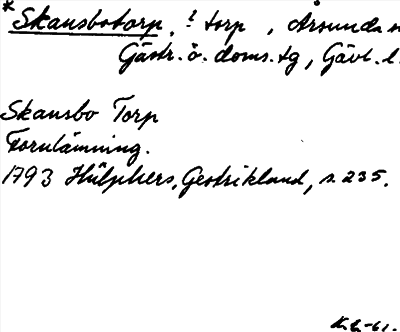 *Skansbotorp, ? torp, Årsunda
Gästr. ö. doms.tg, Gävl. l.
Skansbo Torp
Fornlämning.
1793 Hülphers, Gestrikland, s. 235.
K.L.-61.